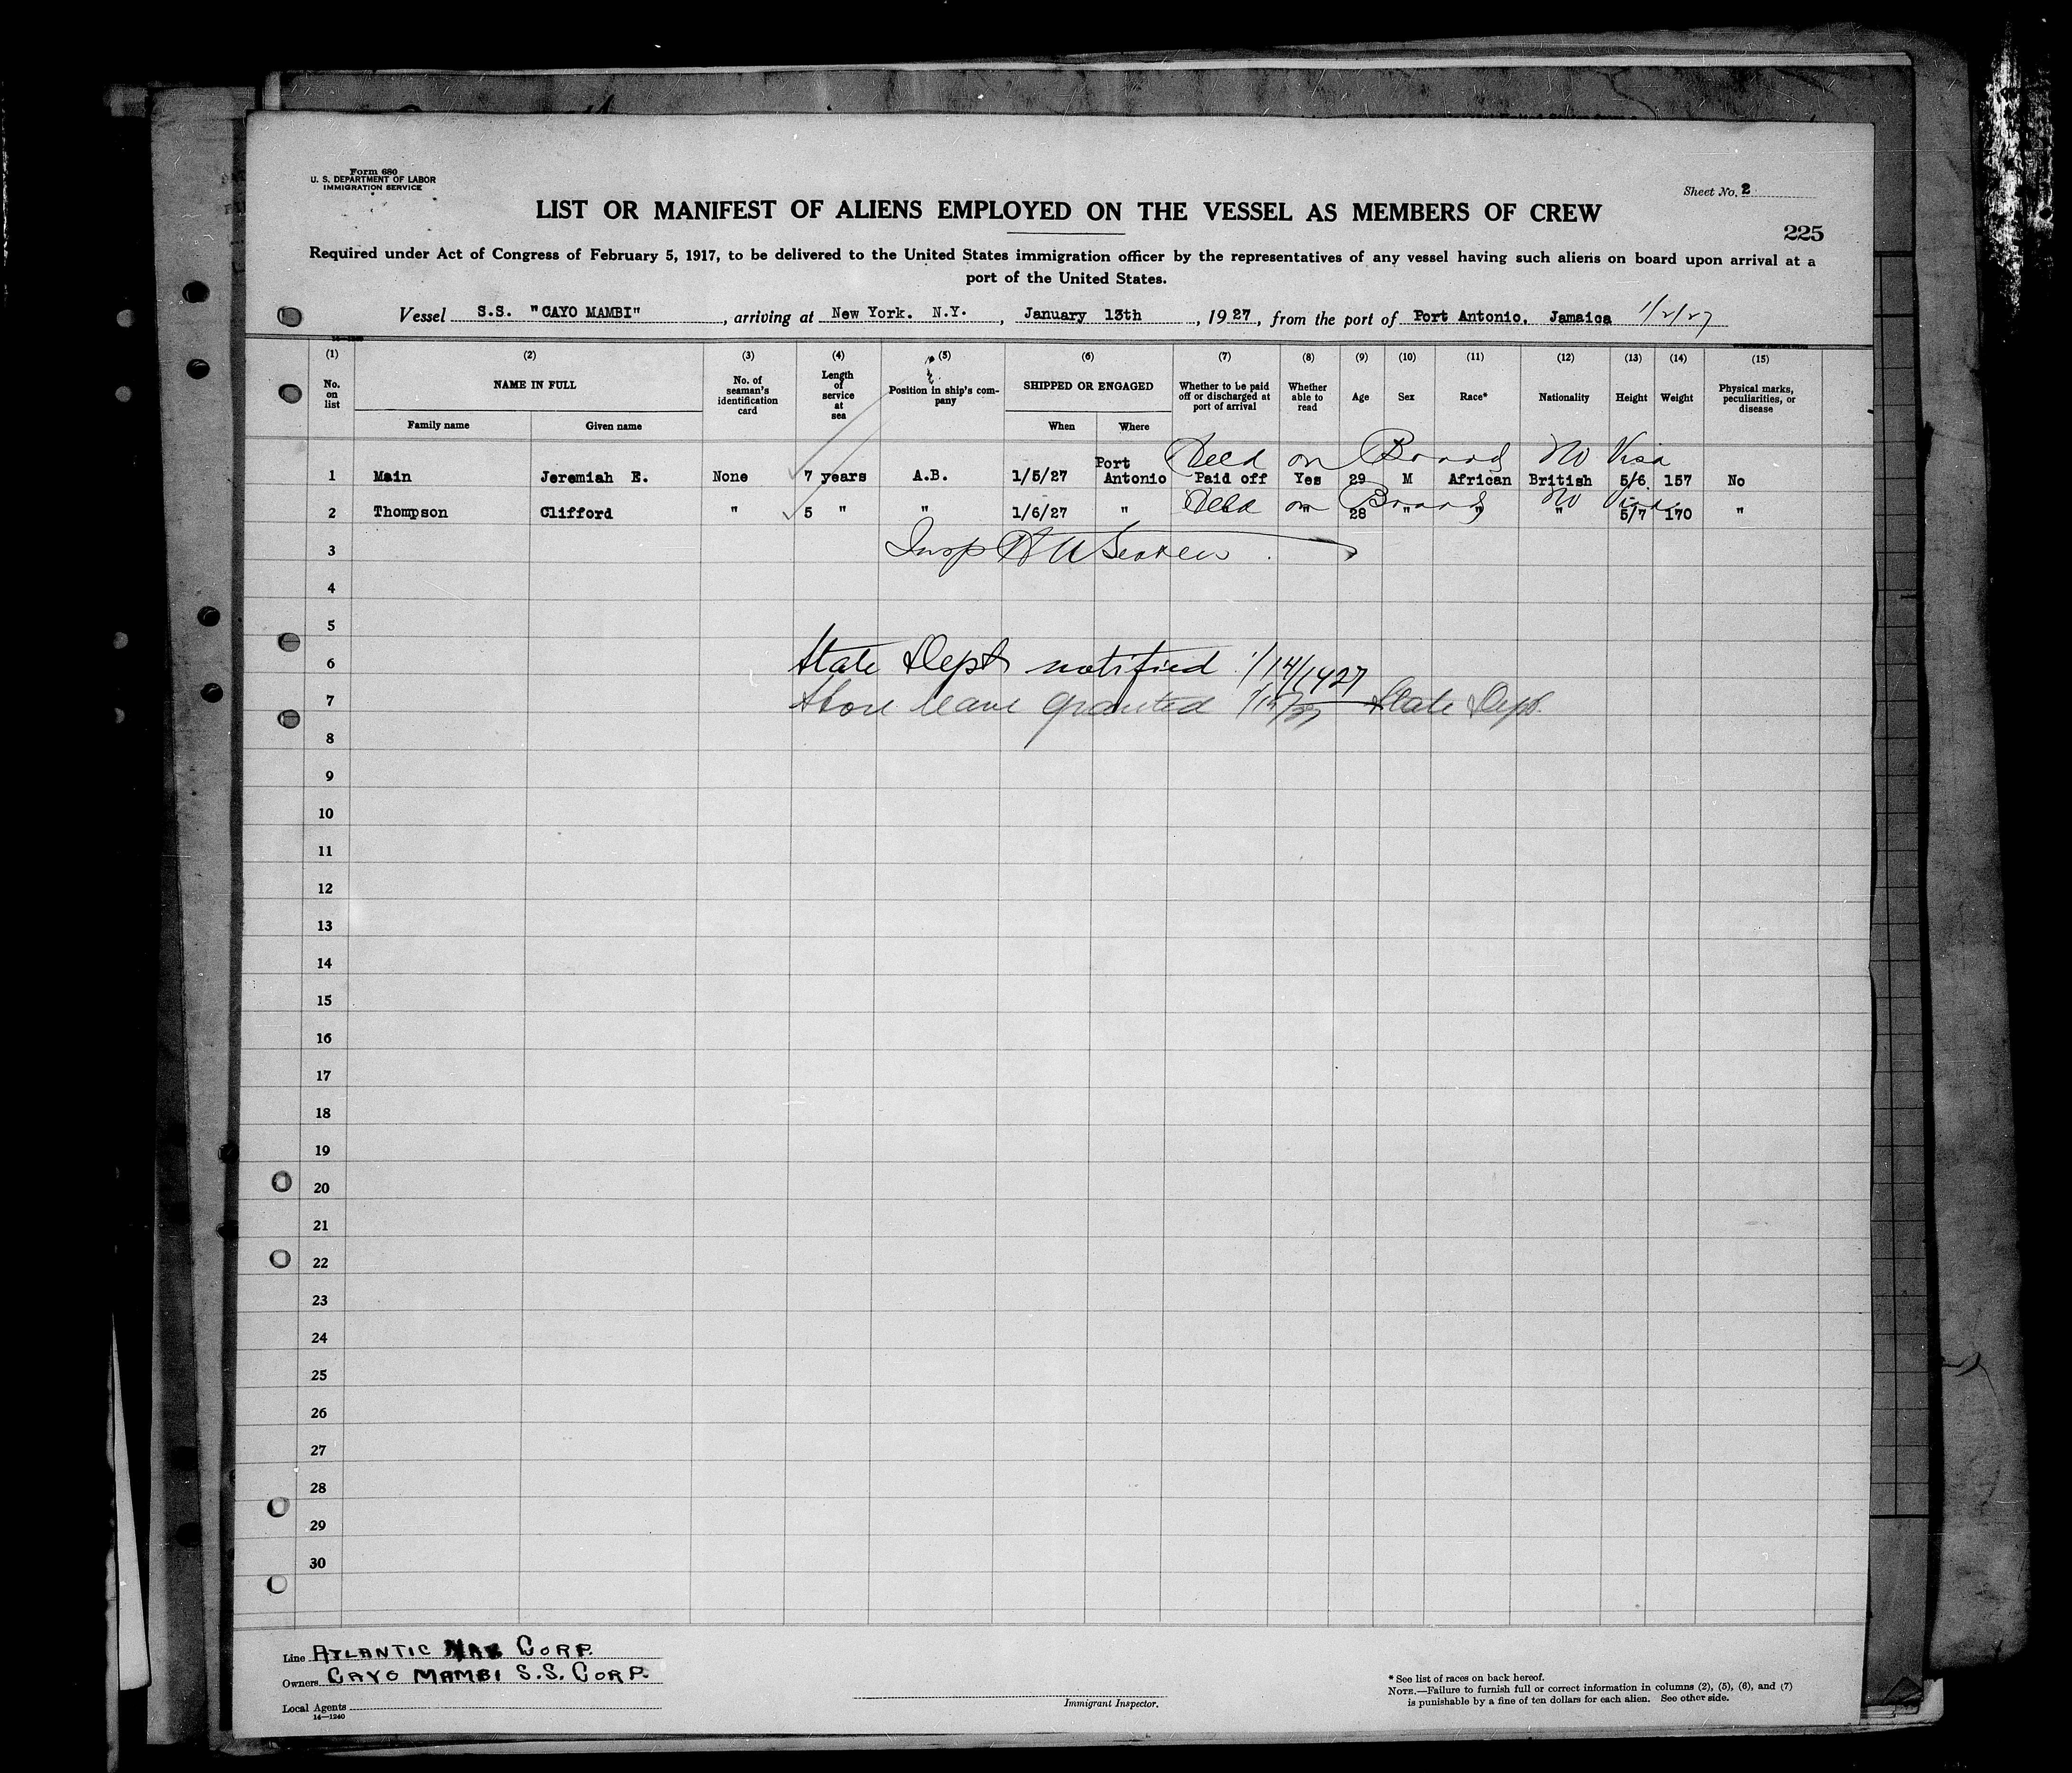 Form 680
U. S. DEPARTMENT OF LABOR
IMMIGRATION SERVICE
Sheet No. 2
LIST OR MANIFEST OF ALIENS EMPLOYED ON THE VESSEL AS MEMBERS OF CREW
225
Required under Act of Congress of February 5, 1917, to be delivered to the United States immigration officer by the representatives of any vessel having such aliens on board upon arrival at a
port of the United States.
Vessel S.S. "CAYO MAMBI", arriving at New York. N.Y., January 13th, 1927, from the port of Port Antonio, Jamaica 1/2/27
(1) (2) (3) (4) (5) (6) (7) (8) (9) (10) (11) (12) (13) (14) (15)
No. on list NAME IN FULL No. of seaman's identification card Length of service at sea Position in ship's company SHIPPED OR ENGAGED Whether to be paid off or discharged at port of arrival Whether able to read Age Sex Race* Nationality Height Weight Physical marks, peculiarities, or disease
Family name Given name When Where
on Board No Visa
1 Main Jeremiah E. None 7 years A.B. 1/5/27 Port Antonio Paid off Yes 29 M African British 5/6 157 No
on Board No Visa
2 Thompson Clifford " 5 " " 1/6/27 " " 28 " " " 5/7 170 "
3 Insp
4
5
6 State Dept notified 1/14/1927
7 Shore leave granted State Dept.
8
9
10
11
12
13
14
15
16
17
18
19
20
21
22
23
24
25
26
27
28
29
30
Line ATLANTIC NAV CORP.
Owners CAYO MAMBI S.S. CORP.
Local Agents
14—1240
Immigrant Inspector.
* See list of races on back hereof.
NOTE.—Failure to furnish full or correct information in columns (2), (5), (6), and (7)
is punishable by a fine of ten dollars for each alien. See other side.